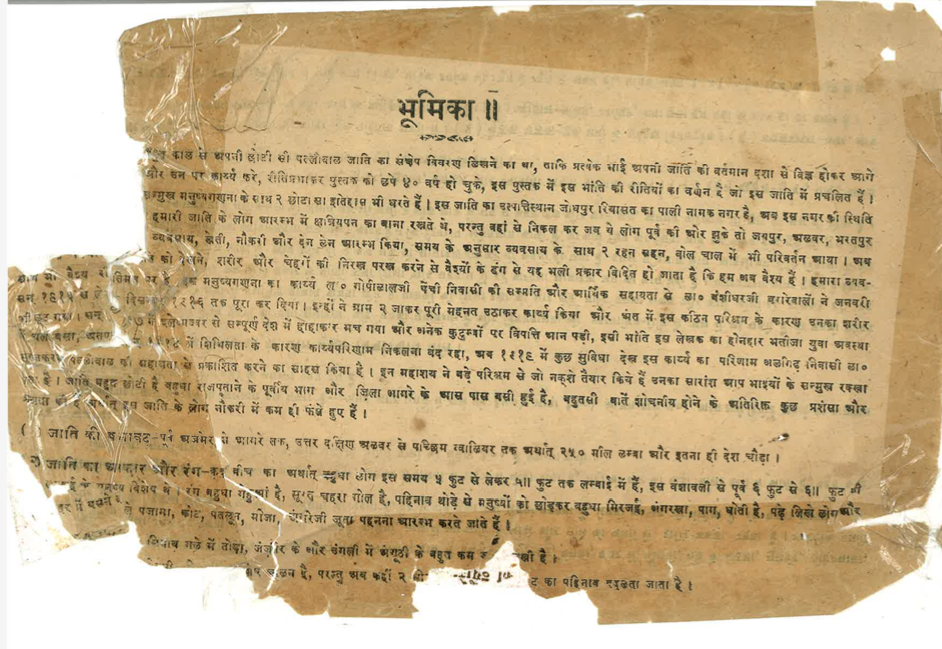 भूमिका ॥
काल से अपनी छोटी सी पल्लीवाल जाति का संक्षेप विवरण लिखने का था, ताकि प्रत्येक भाई अपनी जाति की वर्तमान दशा से विज्ञ होकर आगे
और उन पर कार्य्य करे, रीतिप्रभाकर पुस्तक को छपे ४० वर्ष हो चुके, इस पुस्तक में इस भांति की रीतियों का वर्णन है जो इस जाति में प्रचलित हैं।
सन्मुख मनुष्यगणना के साथ २ छोटा सा इतिहास भी धरते हैं। इस जाति का उत्पत्तिस्थान जोधपुर रियासत का पाली नामक नगर है, अब इस नगर की स्थिति
हमारी जाति के लोग आरम्भ में क्षत्रियपन का बाना रखते थे, परन्तु वहां से निकल कर जब ये लोग पूर्व की ओर झुके तो जयपुर, अलवर, भरतपुर
व्यवसाय, खेती, नौकरी और देन लेन आरम्भ किया, समय के अनुसार व्यवसाय के साथ २ रहन सहन, बोल चाल में भी परिवर्तन आया। अब
को देखने, शरीर और चेहरों की निरख परख करने से वैश्यों के ढंग से यह भली प्रकार विदित हो जाता है कि हम अब वैश्य हैं। हमारा
मनुष्यगणना का कार्य्य गोपीलालजी पेंची निवासी की सम्प्रति और आर्थिक सहायता से ला० वंशीधरजी ने जनवरी
सन् १९१५ से १९१६ तक पूरा कर दिया। इन्होंने ग्राम २ जाकर पूरी मेहनत उठाकर कार्य्य किया और अंत में इस कठिन परिश्रम के कारण उनका शरीर
छूट गया। सन् से सम्पूर्ण देश में हाहाकार मच गया और अनेक कुटुम्बों पर विपत्ति आन पड़ी, इसी भांति इस लेखक का होनहार भतीजा युवा अवस्था
में शिथिलता के कारण कार्य्यपरिणाम निकलना बंद रहा, अब १९१९ में कुछ सुविधा देख इस कार्य्य का परिणाम अलीगढ़ निवासी ला०
की सहायता से प्रकाशित करने का साहस किया है। इन महाशय ने बड़े परिश्रम से जो नक़शे तैयार किये हैं उनका सारांश आप भाइयों के सन्मुख रक्खा
है। जाति बहुत छोटी है बहुधा राजपूताने के पूर्वीय भाग और ज़िला आगरे के आस पास बसी हुई है, बहुतसी बातें शोचनीय होने के अतिरिक्त कुछ प्रशंसा और
इस जाति के लोग नौकरी में कम ही फंसे हुए हैं।
जाति की पूर्व अजमेर से आगरे तक, उत्तर दक्षिण अलवर से पच्छिम ग्वालियर तक अर्थात् २५० मील लम्बा और इतना ही देश चौड़ा।
जाति का आकार और रंग-कद बीच का अर्थात् बहुधा लोग इस समय ५ फुट से लेकर ५॥ फुट तक लम्बाई में हैं, इस वंशावली से पूर्व ६ फुट से ६॥ फुट भी
मनुष्य विशेष थे। रंग बहुधा गेहुंआं है, सूरत चहरा गोल है, पहिनाव थोड़े से मनुष्यों को छोड़कर बहुधा मिरजई, अंगरखा, पाग, धोती है, पढ़े लिखे लोग और
पजामा, कोट, पतलून, मोजा, अंगरेजी जूता पहनना आरम्भ करते जाते हैं।
गले में तोड़ा, जंज़ीर के और उंगली में अंगूठी के बहुत कम है।
चलन है, परन्तु अब कहीं २ का पहिनाव बदलता जाता है।